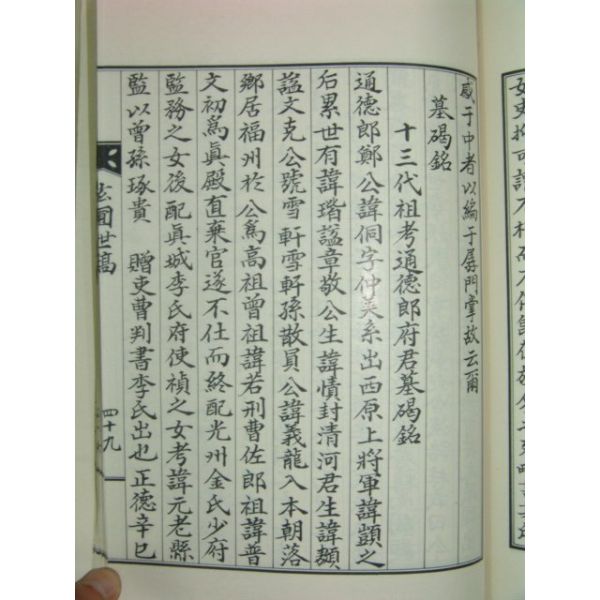 感于中者以編于孱門掌故云爾
墓碣銘
十三代祖考通德郎府君墓碣銘
通德郎鄭公諱侗字仲美系出西原上將軍諱顗之
后累世有諱瑎諡章敬公生諱𢢝封清河君生諱䫨
諡文克公號雪軒雪軒孫散員公諱義龍入本朝落
鄉居福州於公爲高祖曾祖諱若刑曹佐郎祖諱普
文初爲眞殿直棄官遂不仕而終配光州金氏少府
監務之女後配眞城李氏府使禎之女考諱元老縣
監以曾孫琢貴 贈吏曹判書李氏出也正德辛巳
世稿
四十九